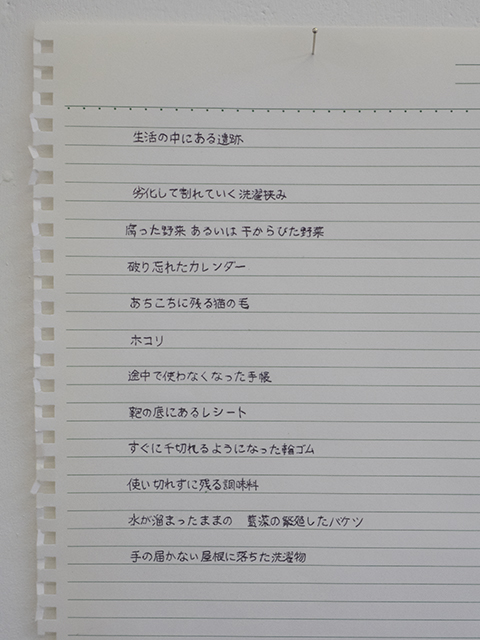 生活の中にある遺跡
劣化して割れていく洗濯挟み
腐った野菜 あるいは 干からびた野菜
破り忘れたカレンダー
あちこちに残る猫の毛
ホコリ
途中で使わなくなった手帳
鞄の底にあるレシート
すぐに千切れるようになった輪ゴム
使い切れずに残る調味料
水が溜まったままの 藍藻の繁殖したバケツ
手の届かない屋根に落ちた洗濯物